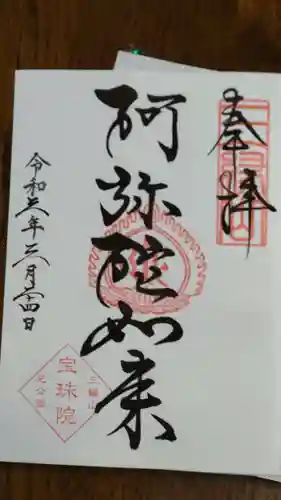 奉拝
阿弥陀如来
令和三年三月二四日
三縁山
宝珠院